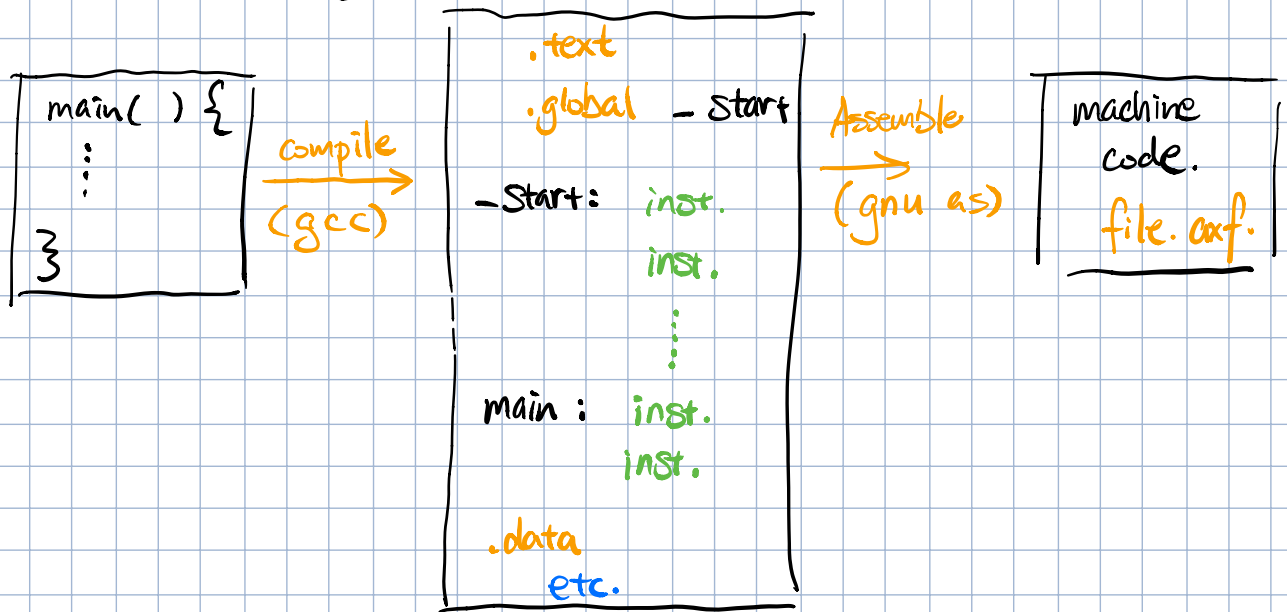 main( ) {
⋮
}
compile
(gcc)
.text
.global _start
_start: inst.
inst.
⋮
main : inst.
inst.
.data
etc.
Assemble
(gnu as)
machine
code.
file.axf.